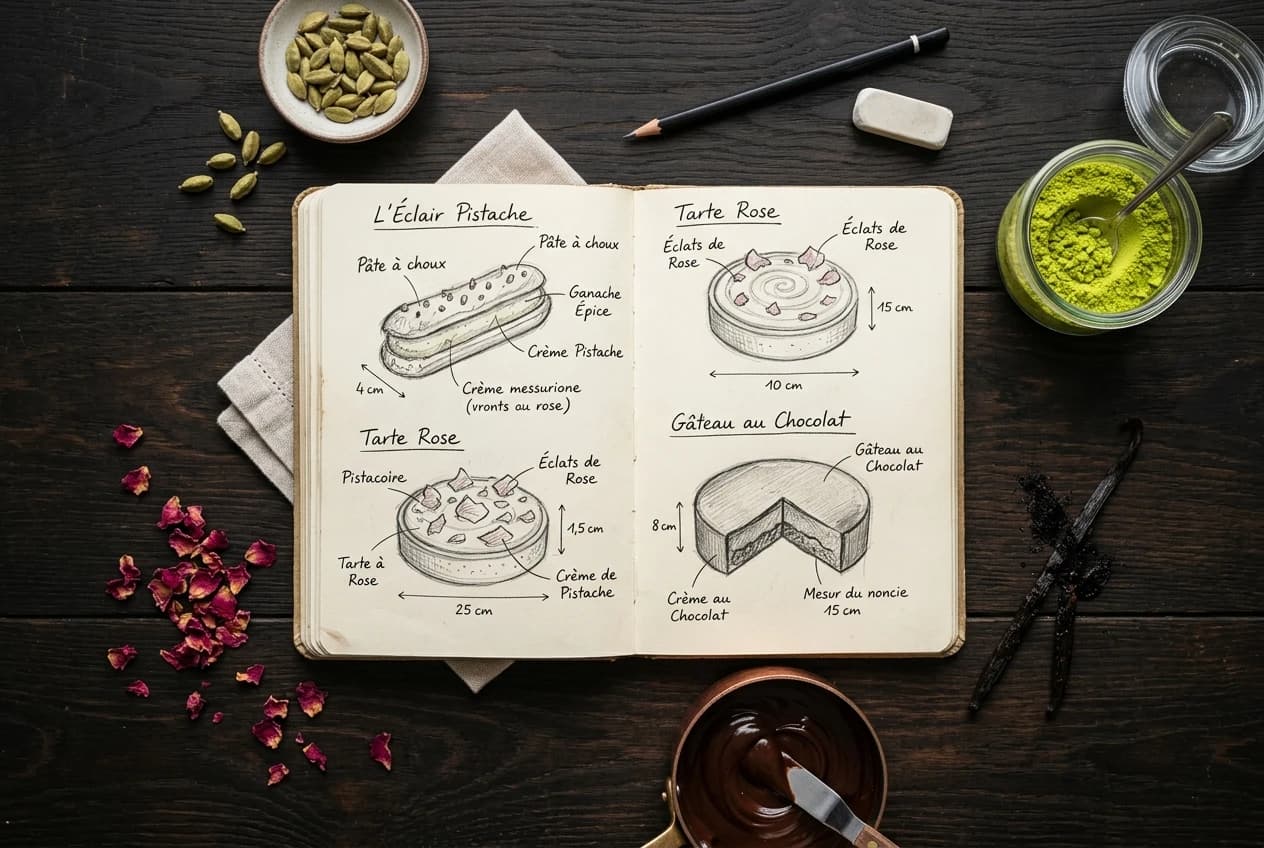 L'Éclair Pistache
Pâte à choux
Pâte à choux
Ganache
Épice
Crème Pistache
4 cm
Crème messurione
(vronts au rose)
Tarte Rose
Pistacoire
Éclats de
Rose
1,5 cm
Tarte à
Rose
Crème de
Pistache
25 cm
Tarte Rose
Éclats de
Rose
Éclats de
Rose
15 cm
10 cm
Gâteau au Chocolat
Gâteau au
Chocolat
8 cm
Crème au
Chocolat
Mesur du noncie
15 cm